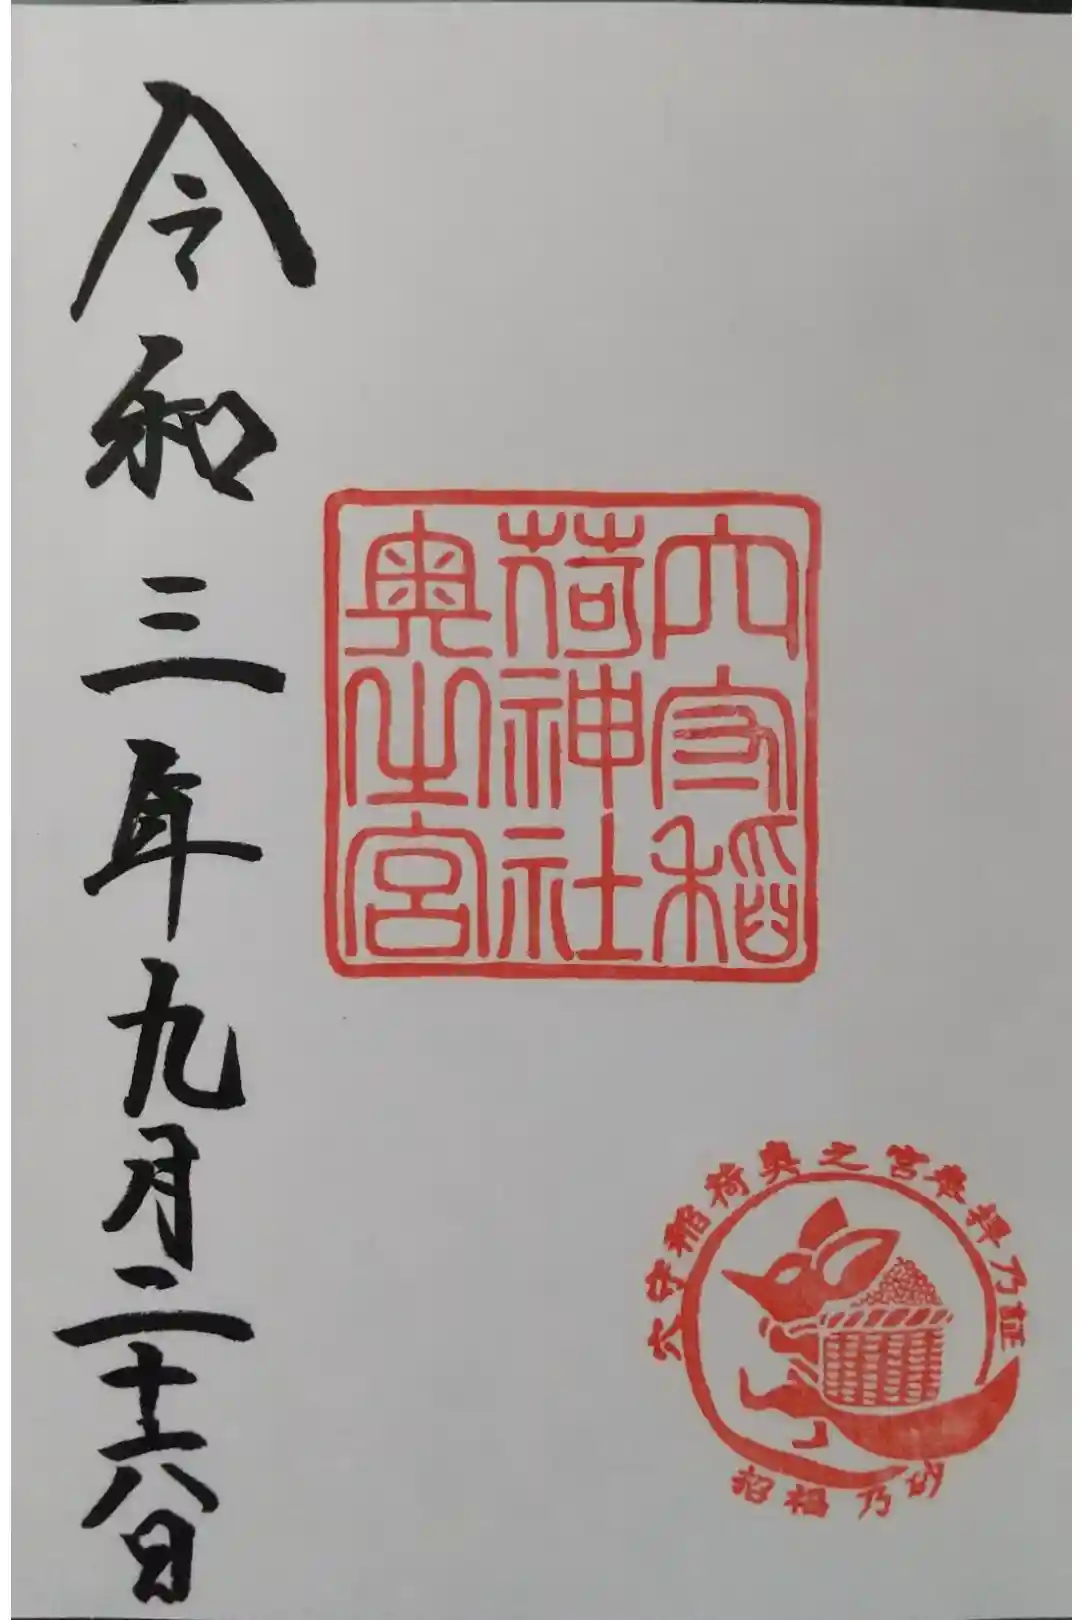 穴守稲
荷神社
奥之宮
令和三年九月二十六日
穴守稲荷奥之宮参拝乃証
招福乃砂